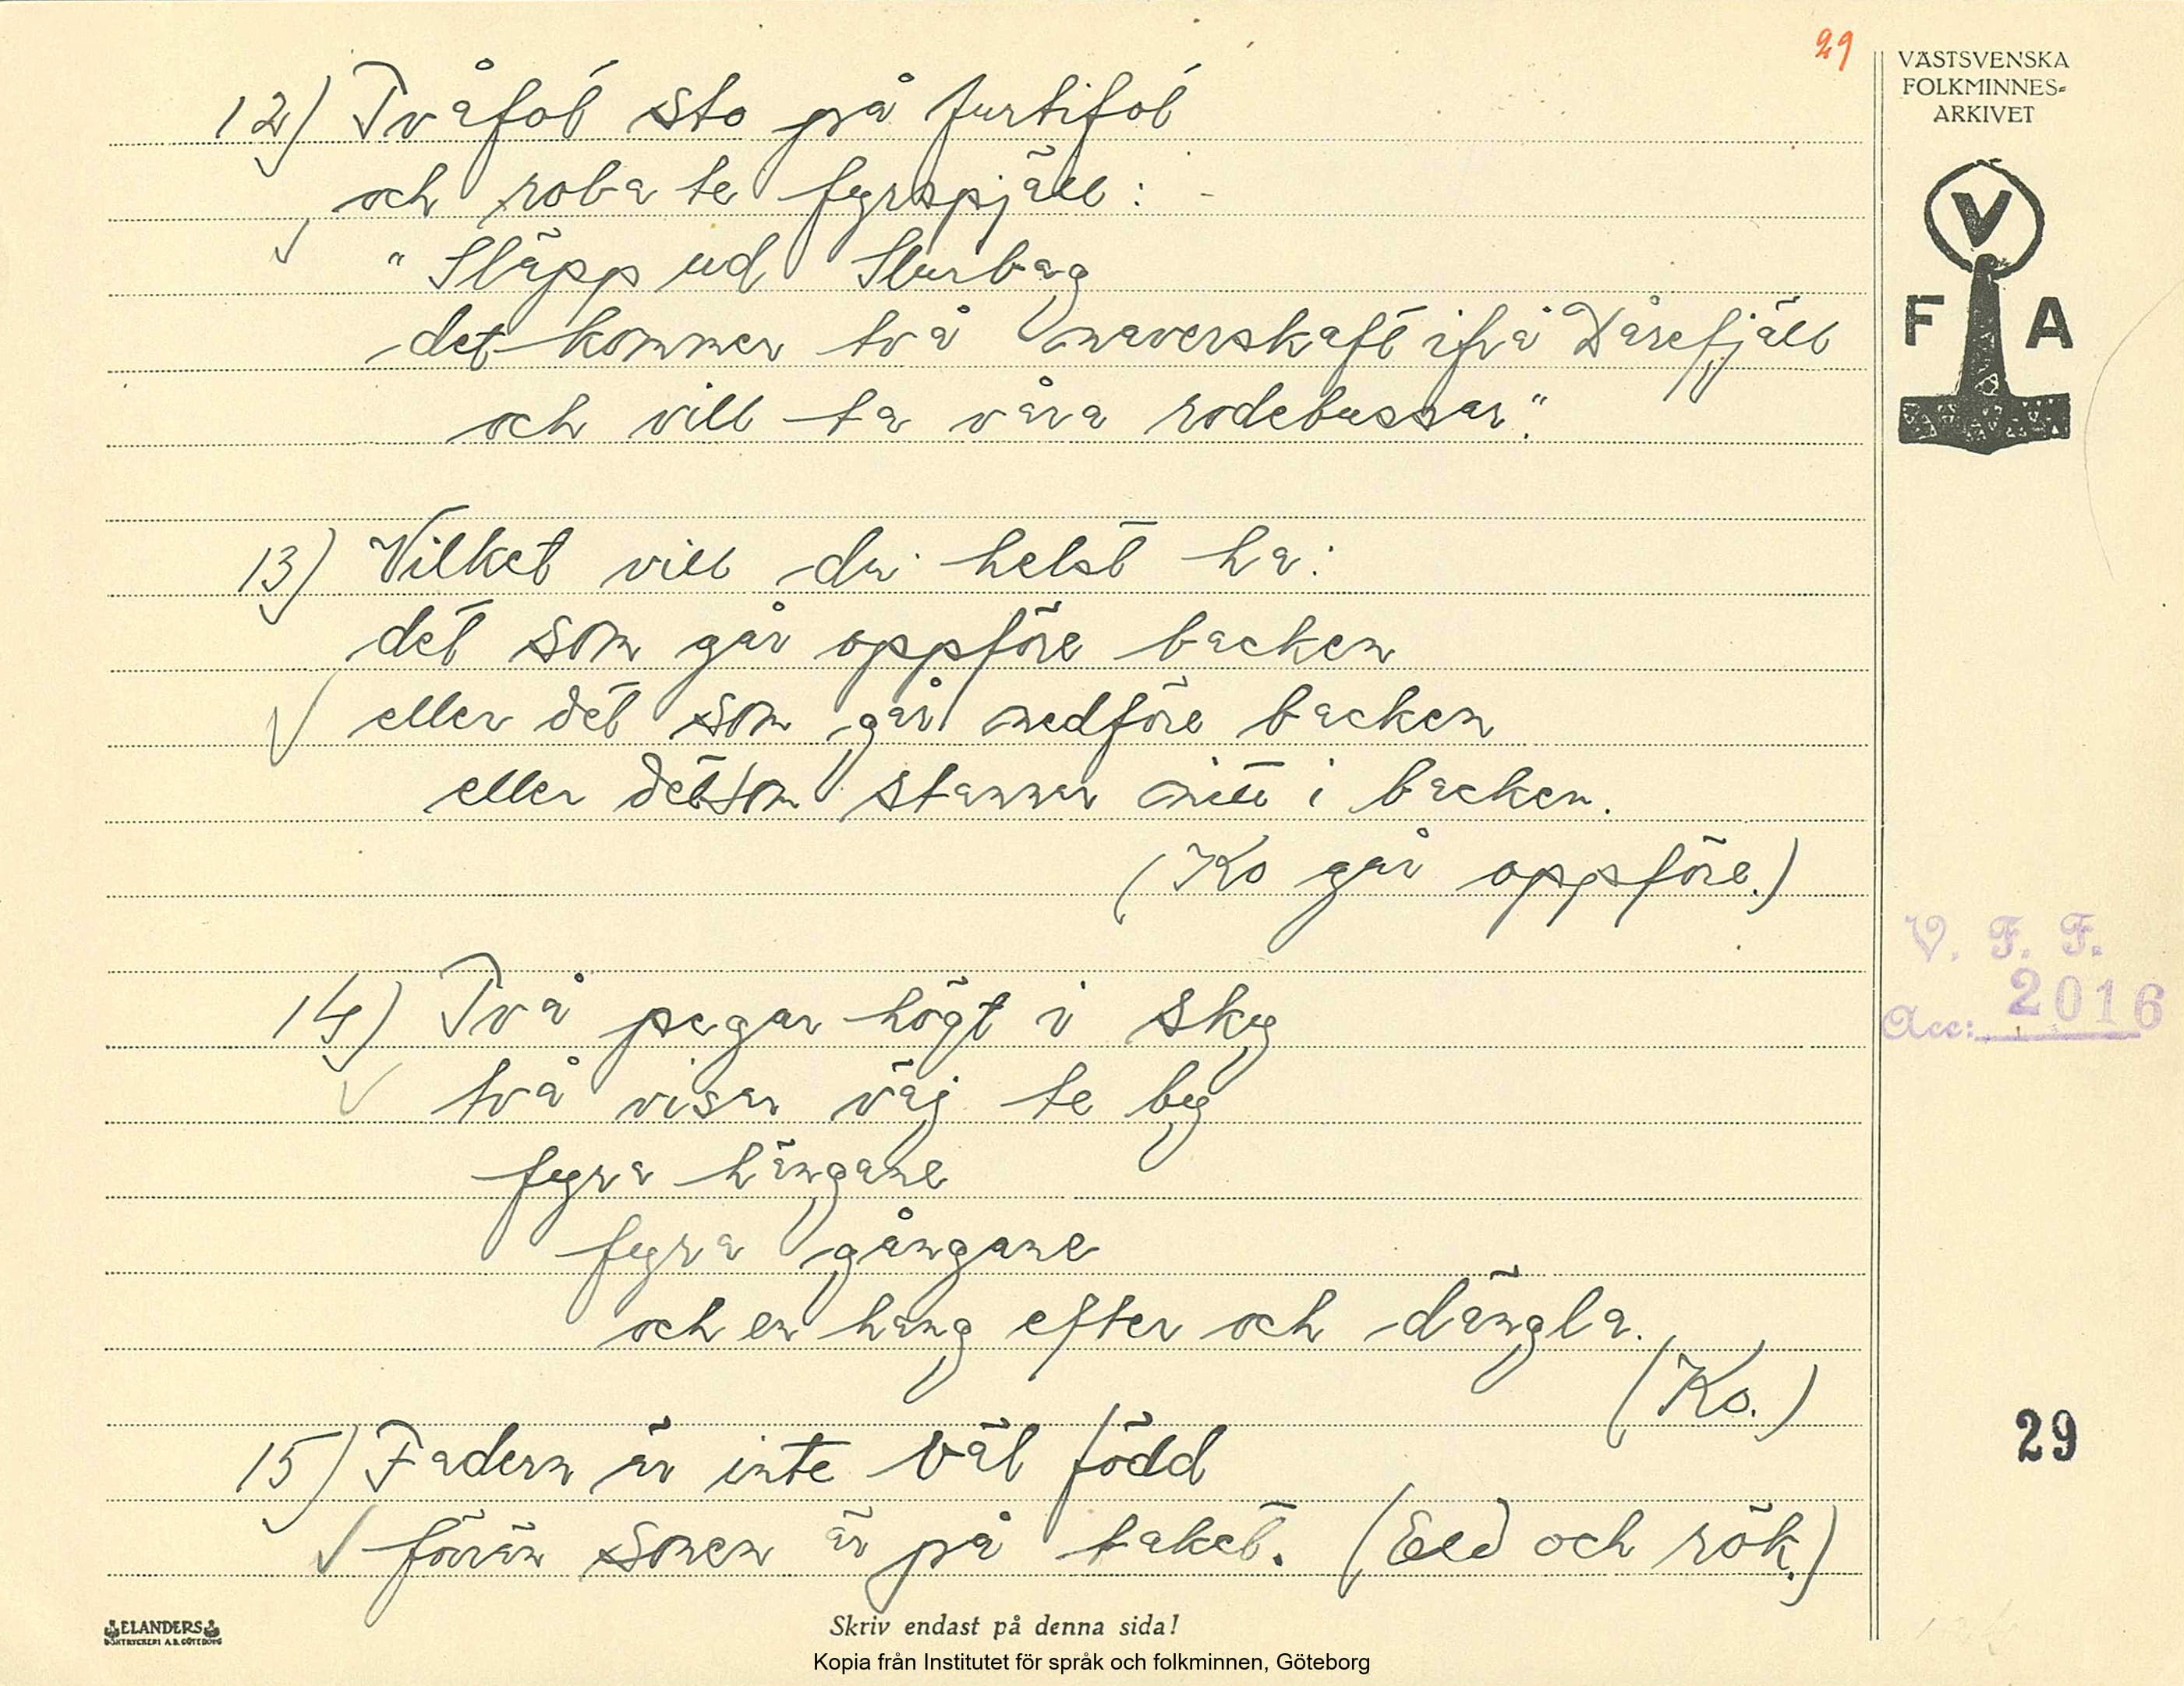 29
VÄSTSVENSKA
FOLKMINNES-
ARKIVET
V
F A
12) Tvåfot sto på furtifot
och roba te fyrspjäll:
"Släpp ud Slurbag
det kommer två naverskaft ifrå Dårefjäll
och vill ta våra rodebussar."
13) Vilket vill du helst ha:
det som går oppföre backen
eller det som går nedföre backen
eller det som stannar mitt i backen.
(Ko går oppföre.)
V. F. F.
Acc: 2016
14) Två pegar högt i sky
två visar väj te by
fyra hängane
fyra gångane
och en hang efter och dängla.
(Ko.)
15) Fadern är inte väl född
29
förrän sonen är på taket. (Eld och rök.)
ELANDERS
BOKTRYCKERI A.B. GÖTEBORG
Skriv endast på denna sida!
Kopia från Institutet för språk och folkminnen, Göteborg